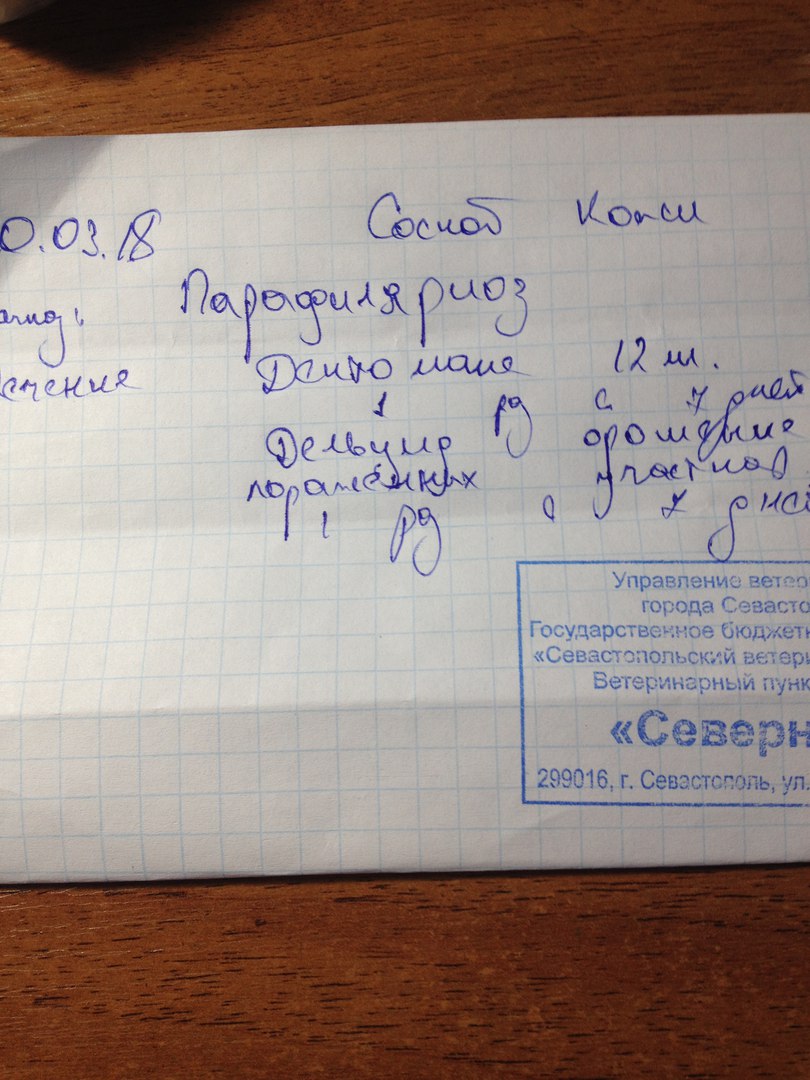 0.03.18 Соснов Кокси
Парафиляриоз
ечение Дектомакс 12 мл.
1 рд в 7 дней
Дельцид орошение
поражённых участков
1 рд в 7 дней
Управление ветер
города Севасто
Государственное бюджетн
«Севастопольский ветери
Ветеринарный пунк
«Северн
299016, г. Севастополь, ул.